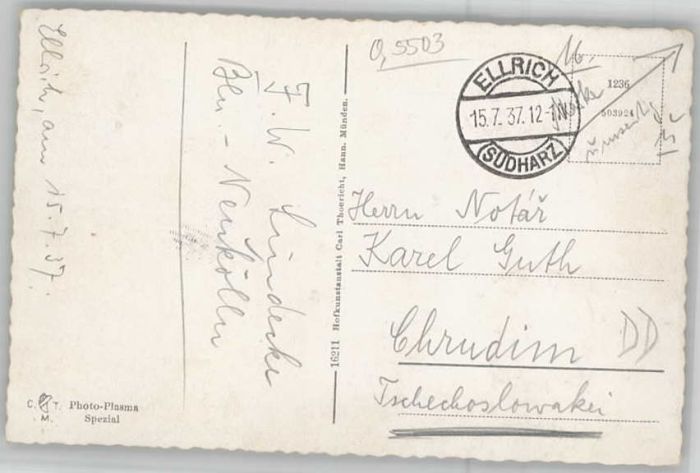 Ellrich, am 15.7.37.
J. W. Lindecke
Bln. - Neukölln
C. T. Photo-Plasma
M. Spezial
16211 Hofkunstanstalt Carl Thoericht, Hann. Münden.
0,5503
ELLRICH
15.7.37.12-
(SÜDHARZ)
16.
1236
503924
Herrn Notář
Karel Guth
Chrudim DD
Tschechoslowakei